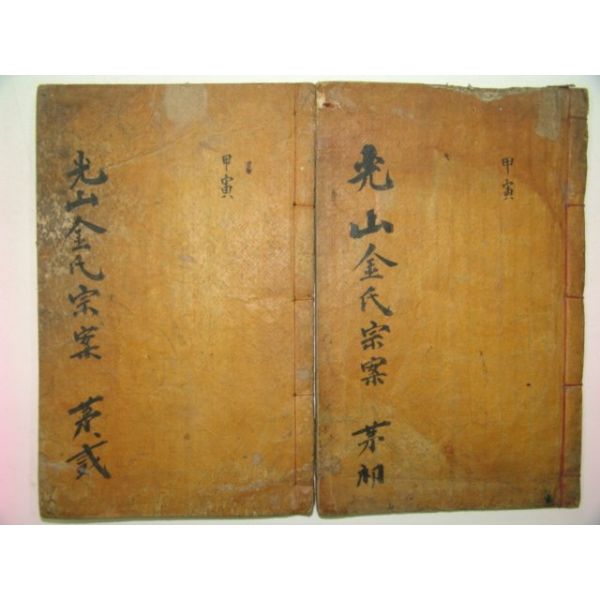 甲寅
光山金氏宗案 苐初
甲寅
光山金氏宗案 苐貳